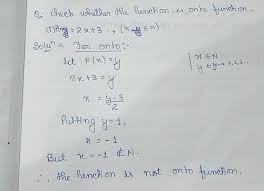 Q. Check whether the function is onto function.
y = 2x + 3 , (x, y ∈ N)
Soluⁿ For onto :-
let f(x) = y
2x + 3 = y
x = y-3/2
Putting y = 1,
x = -1
But x = -1 ∉ N.
∴ the function is not onto function.
x ∈ N
y ∈ N → 1, 2, 3..